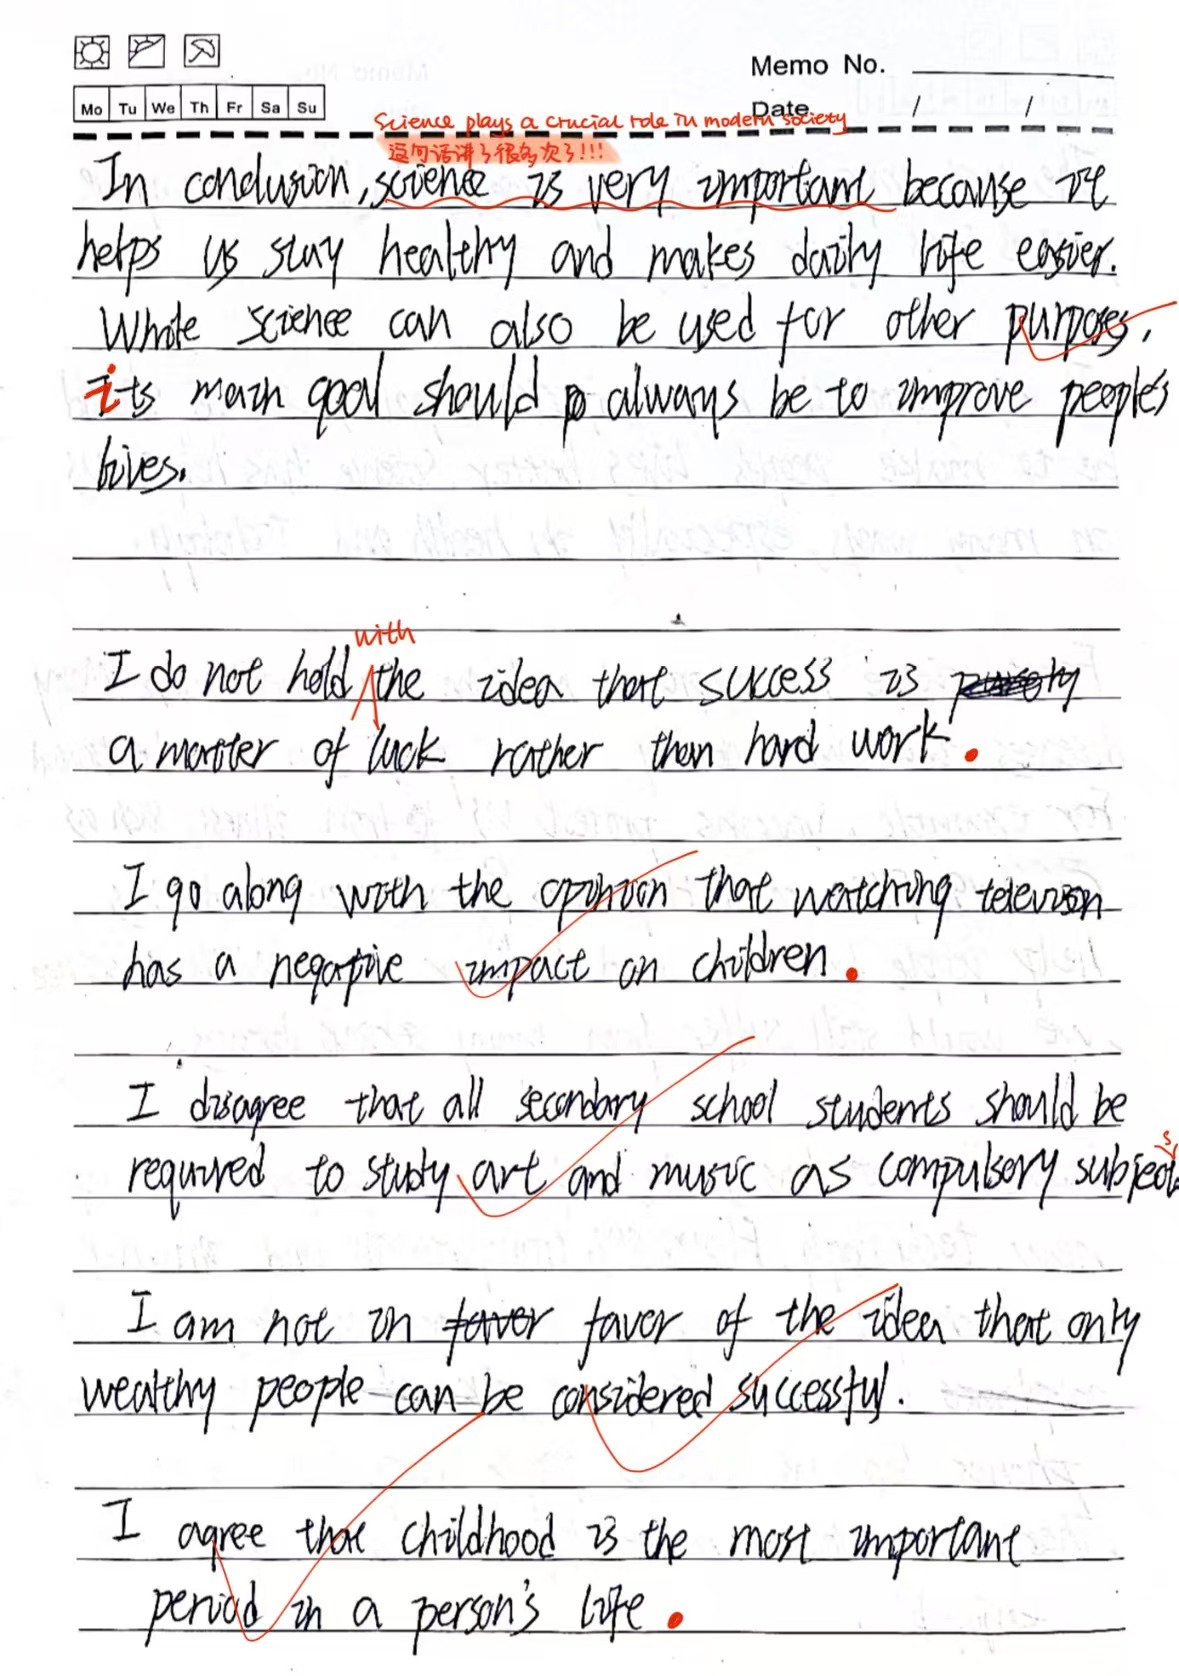 Memo No.
Mo Tu We Th Fr Sa Su
Date / /
Science plays a crucial role in modern society
这句话讲了很多次了!!!
In conclusion, science is very important because it
helps us stay healthy and makes daily life easier.
While science can also be used for other purposes,
its main goal should always be to improve people's
lives.
with
I do not hold the idea that success is
a matter of luck rather than hard work.
I go along with the opinion that watching television
has a negative impact on children.
I disagree that all secondary school students should be
s
required to study art and music as compulsory subject
I am not in favor favor of the idea that only
wealthy people can be considered successful.
I agree that childhood is the most important
period in a person's life.